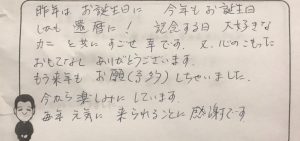 昨年は お誕生日に 今年も お誕生日
しかも 還暦に！ 記念する日 大好きな
カニ と共に すごせ 幸です。 又、心のこもった
おもてなし ありがとうございます。
もう来年も お願(予約)しちゃいました。
今から楽しみにしています。
毎年 元気に 来られることに 感謝です